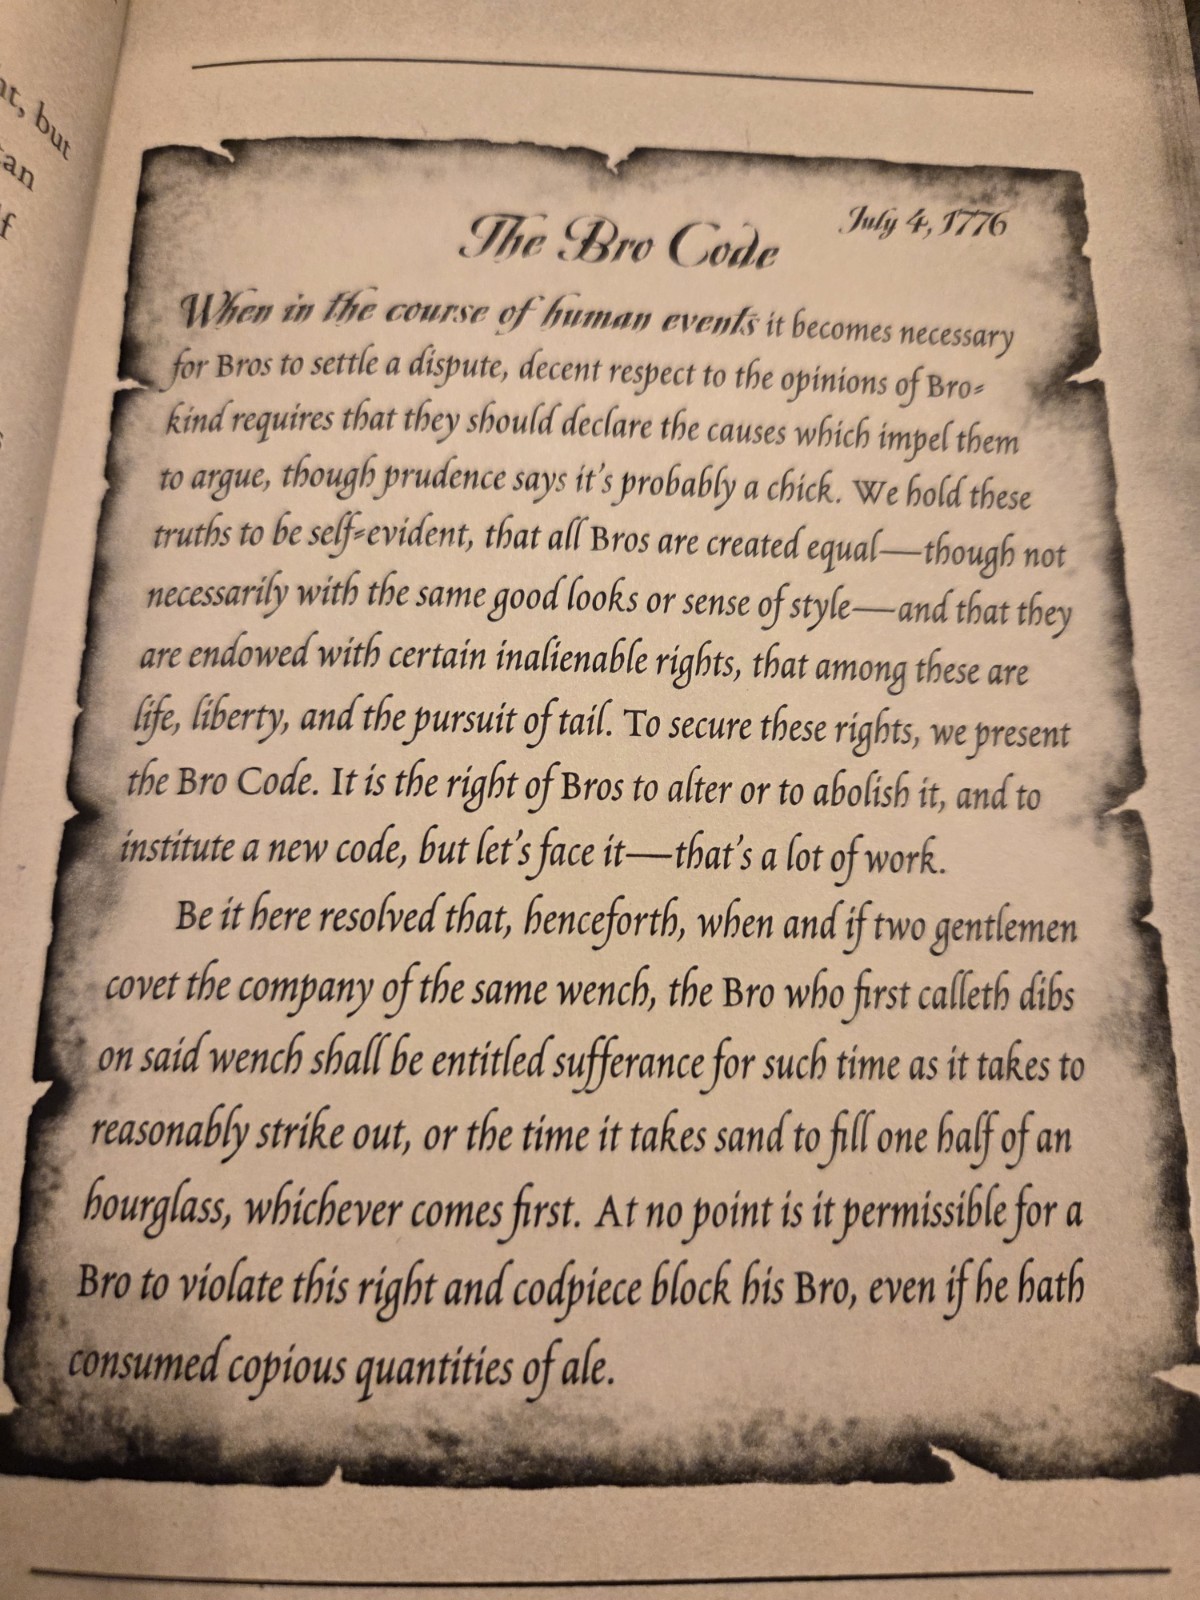 nt, but
tan
lf
s
The Bro Code
July 4, 1776
When in the course of human events it becomes necessary
for Bros to settle a dispute, decent respect to the opinions of Bro-
kind requires that they should declare the causes which impel them
to argue, though prudence says it's probably a chick. We hold these
truths to be self-evident, that all Bros are created equal—though not
necessarily with the same good looks or sense of style—and that they
are endowed with certain inalienable rights, that among these are
life, liberty, and the pursuit of tail. To secure these rights, we present
the Bro Code. It is the right of Bros to alter or to abolish it, and to
institute a new code, but let's face it—that's a lot of work.
Be it here resolved that, henceforth, when and if two gentlemen
covet the company of the same wench, the Bro who first calleth dibs
on said wench shall be entitled sufferance for such time as it takes to
reasonably strike out, or the time it takes sand to fill one half of an
hourglass, whichever comes first. At no point is it permissible for a
Bro to violate this right and codpiece block his Bro, even if he hath
consumed copious quantities of ale.